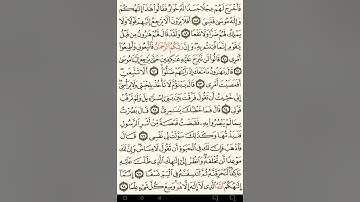 فَأَخْرَجَ لَهُمْ عِجْلًا جَسَدًا لَّهُۥ خُوَارٌ فَقَالُوا۟ هَٰذَآ إِلَٰهُكُمْ
وَإِلَٰهُ مُوسَىٰ فَنَسِىَ ٨٨ أَفَلَا يَرَوْنَ أَلَّا يَرْجِعُ إِلَيْهِمْ قَوْلًا وَلَا
يَمْلِكُ لَهُمْ ضَرًّا وَلَا نَفْعًا ٨٩ وَلَقَدْ قَالَ لَهُمْ هَٰرُونُ مِن قَبْلُ
يَٰقَوْمِ إِنَّمَا فُتِنتُم بِهِۦ وَإِنَّ رَبَّكُمُ ٱلرَّحْمَٰنُ فَٱتَّبِعُونِى وَأَطِيعُوٓا۟
أَمْرِى ٩٠ قَالُوا۟ لَن نَّبْرَحَ عَلَيْهِ عَٰكِفِينَ حَتَّىٰ يَرْجِعَ إِلَيْنَا مُوسَىٰ
٩١ قَالَ يَٰهَٰرُونُ مَا مَنَعَكَ إِذْ رَأَيْتَهُمْ ضَلُّوٓا۟ ٩٢ أَلَّا تَتَّبِعَنِ
أَفَعَصَيْتَ أَمْرِى ٩٣ قَالَ يَبْنَؤُمَّ لَا تَأْخُذْ بِلِحْيَتِى وَلَا بِرَأْسِىٓ
إِنِّى خَشِيتُ أَن تَقُولَ فَرَّقْتَ بَيْنَ بَنِىٓ إِسْرَٰٓءِيلَ وَلَمْ تَرْقُبْ
قَوْلِى ٩٤ قَالَ فَمَا خَطْبُكَ يَٰسَٰمِرِىُّ ٩٥ قَالَ بَصُرْتُ
بِمَا لَمْ يَبْصُرُوا۟ بِهِۦ فَقَبَضْتُ قَبْضَةً مِّنْ أَثَرِ ٱلرَّسُولِ
فَنَبَذْتُهَا وَكَذَٰلِكَ سَوَّلَتْ لِى نَفْسِى ٩٦ قَالَ
فَٱذْهَبْ فَإِنَّ لَكَ فِى ٱلْحَيَوٰةِ أَن تَقُولَ لَا مِسَاسَ وَإِنَّ لَكَ
مَوْعِدًا لَّن تُخْلَفَهُۥ وَٱنظُرْ إِلَىٰٓ إِلَٰهِكَ ٱلَّذِى ظَلْتَ عَلَيْهِ
عَاكِفًا لَّنُحَرِّقَنَّهُۥ ثُمَّ لَنَنسِفَنَّهُۥ فِى ٱلْيَمِّ نَسْفًا ٩٧ إِنَّمَآ
إِلَٰهُكُمُ ٱللَّهُ ٱلَّذِى لَآ إِلَٰهَ إِلَّا هُوَ وَسِعَ كُلَّ شَىْءٍ عِلْمًا ٩٨